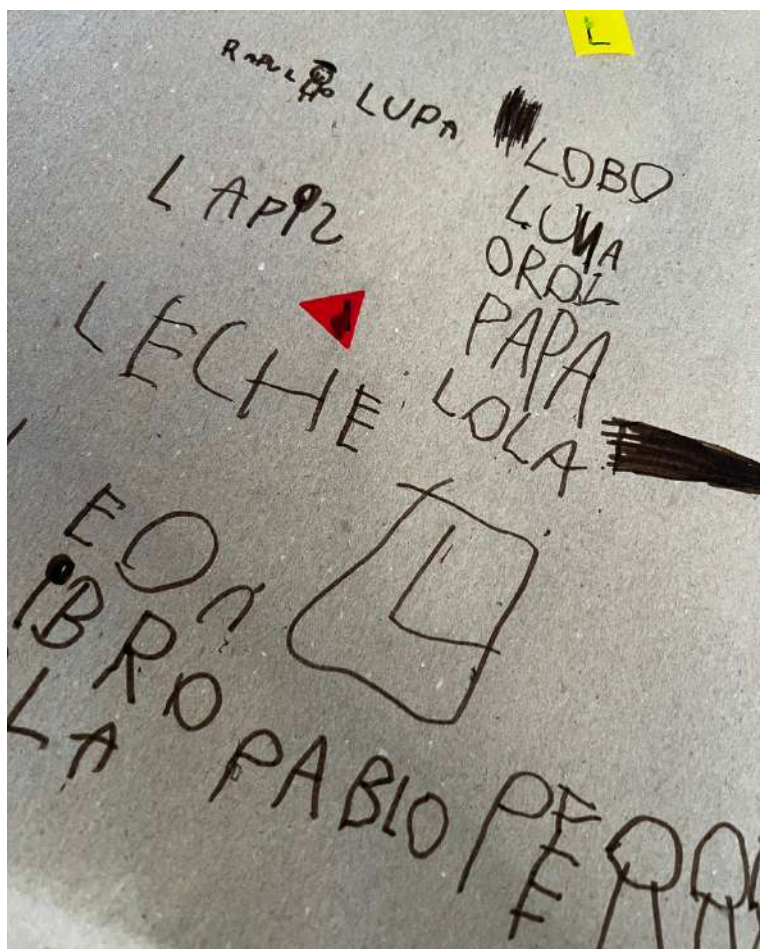 L
LUPA
LOBO
LAPiz
LUNA
OROL
PAPA
LECHE
LOLA
L
EOn
iBRO
LA PABLO